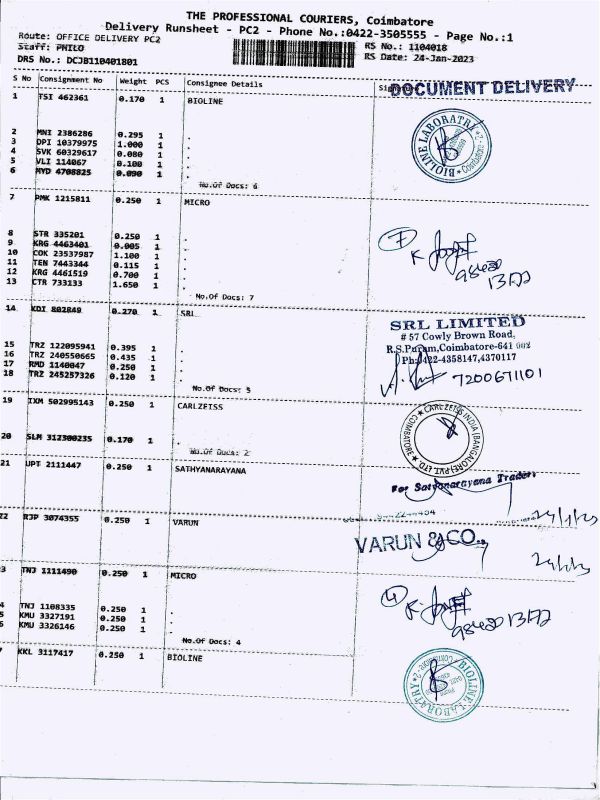 THE PROFESSIONAL COURIERS, Coimbatore
Delivery Runsheet - PC2 - Phone No.:0422-3505555 - Page No.:1
Route: OFFICE DELIVERY PC2
Staff: PHILO
DRS No.: DCJB110401801
RS No.: 1104018
RS Date: 24-Jan-2023
S No Consignment No Weight PCS Consignee Details
DOCUMENT DELIVERY
1 TSI 462361 0.170 1 BIOLINE
2 MNI 2386286 0.295 1 .
3 DPI 10379975 1.000 1 .
4 SVK 60329617 0.080 1 .
5 VLI 114067 0.100 1 .
6 MYD 4708825 0.090 1 .
No.Of Docs: 6
BIOLINE LABORATRY
7 PMK 1215811 0.250 1 MICRO
8 STR 335201 0.250 1 .
9 KRG 4463401 0.005 1 .
10 COK 23537987 1.100 1 .
11 TEN 7443344 0.115 1 .
12 KRG 4461519 0.700 1 .
13 CTR 733133 1.650 1 .
No.Of Docs: 7
7
14 KDI 802849 0.270 1 SRL
15 TRZ 122095941 0.395 1 .
16 TRZ 240550665 0.435 1 .
17 RMD 1140047 0.250 1 .
18 TRZ 245257326 0.120 1 .
No.Of Docs: 5
SRL LIMITED
# 57 Cowly Brown Road,
R.S.Puram,Coimbatore-641 002
Ph:0422-4358147,4370117
7200671101
19 IXM 502995143 0.250 1 CARLZEISS
20 SLM 312300235 0.170 1 .
No.Of Docs: 2
CARL ZEISS INDIA (BANGALORE) PVT. LTD
COIMBATORE
21 UPT 2111447 0.250 1 SATHYANARAYANA
For Satyanarayana Traders
24/1/23
22 RJP 3074355 0.250 1 VARUN
VARUN & CO.,
3 TNJ 1111490 0.250 1 MICRO
4 TNJ 1108335 0.250 1 .
5 KMU 3327191 0.250 1 .
6 KMU 3326146 0.250 1 .
No.Of Docs: 4
4
7 KKL 3117417 0.250 1 BIOLINE
BIOLINE LABORATRY